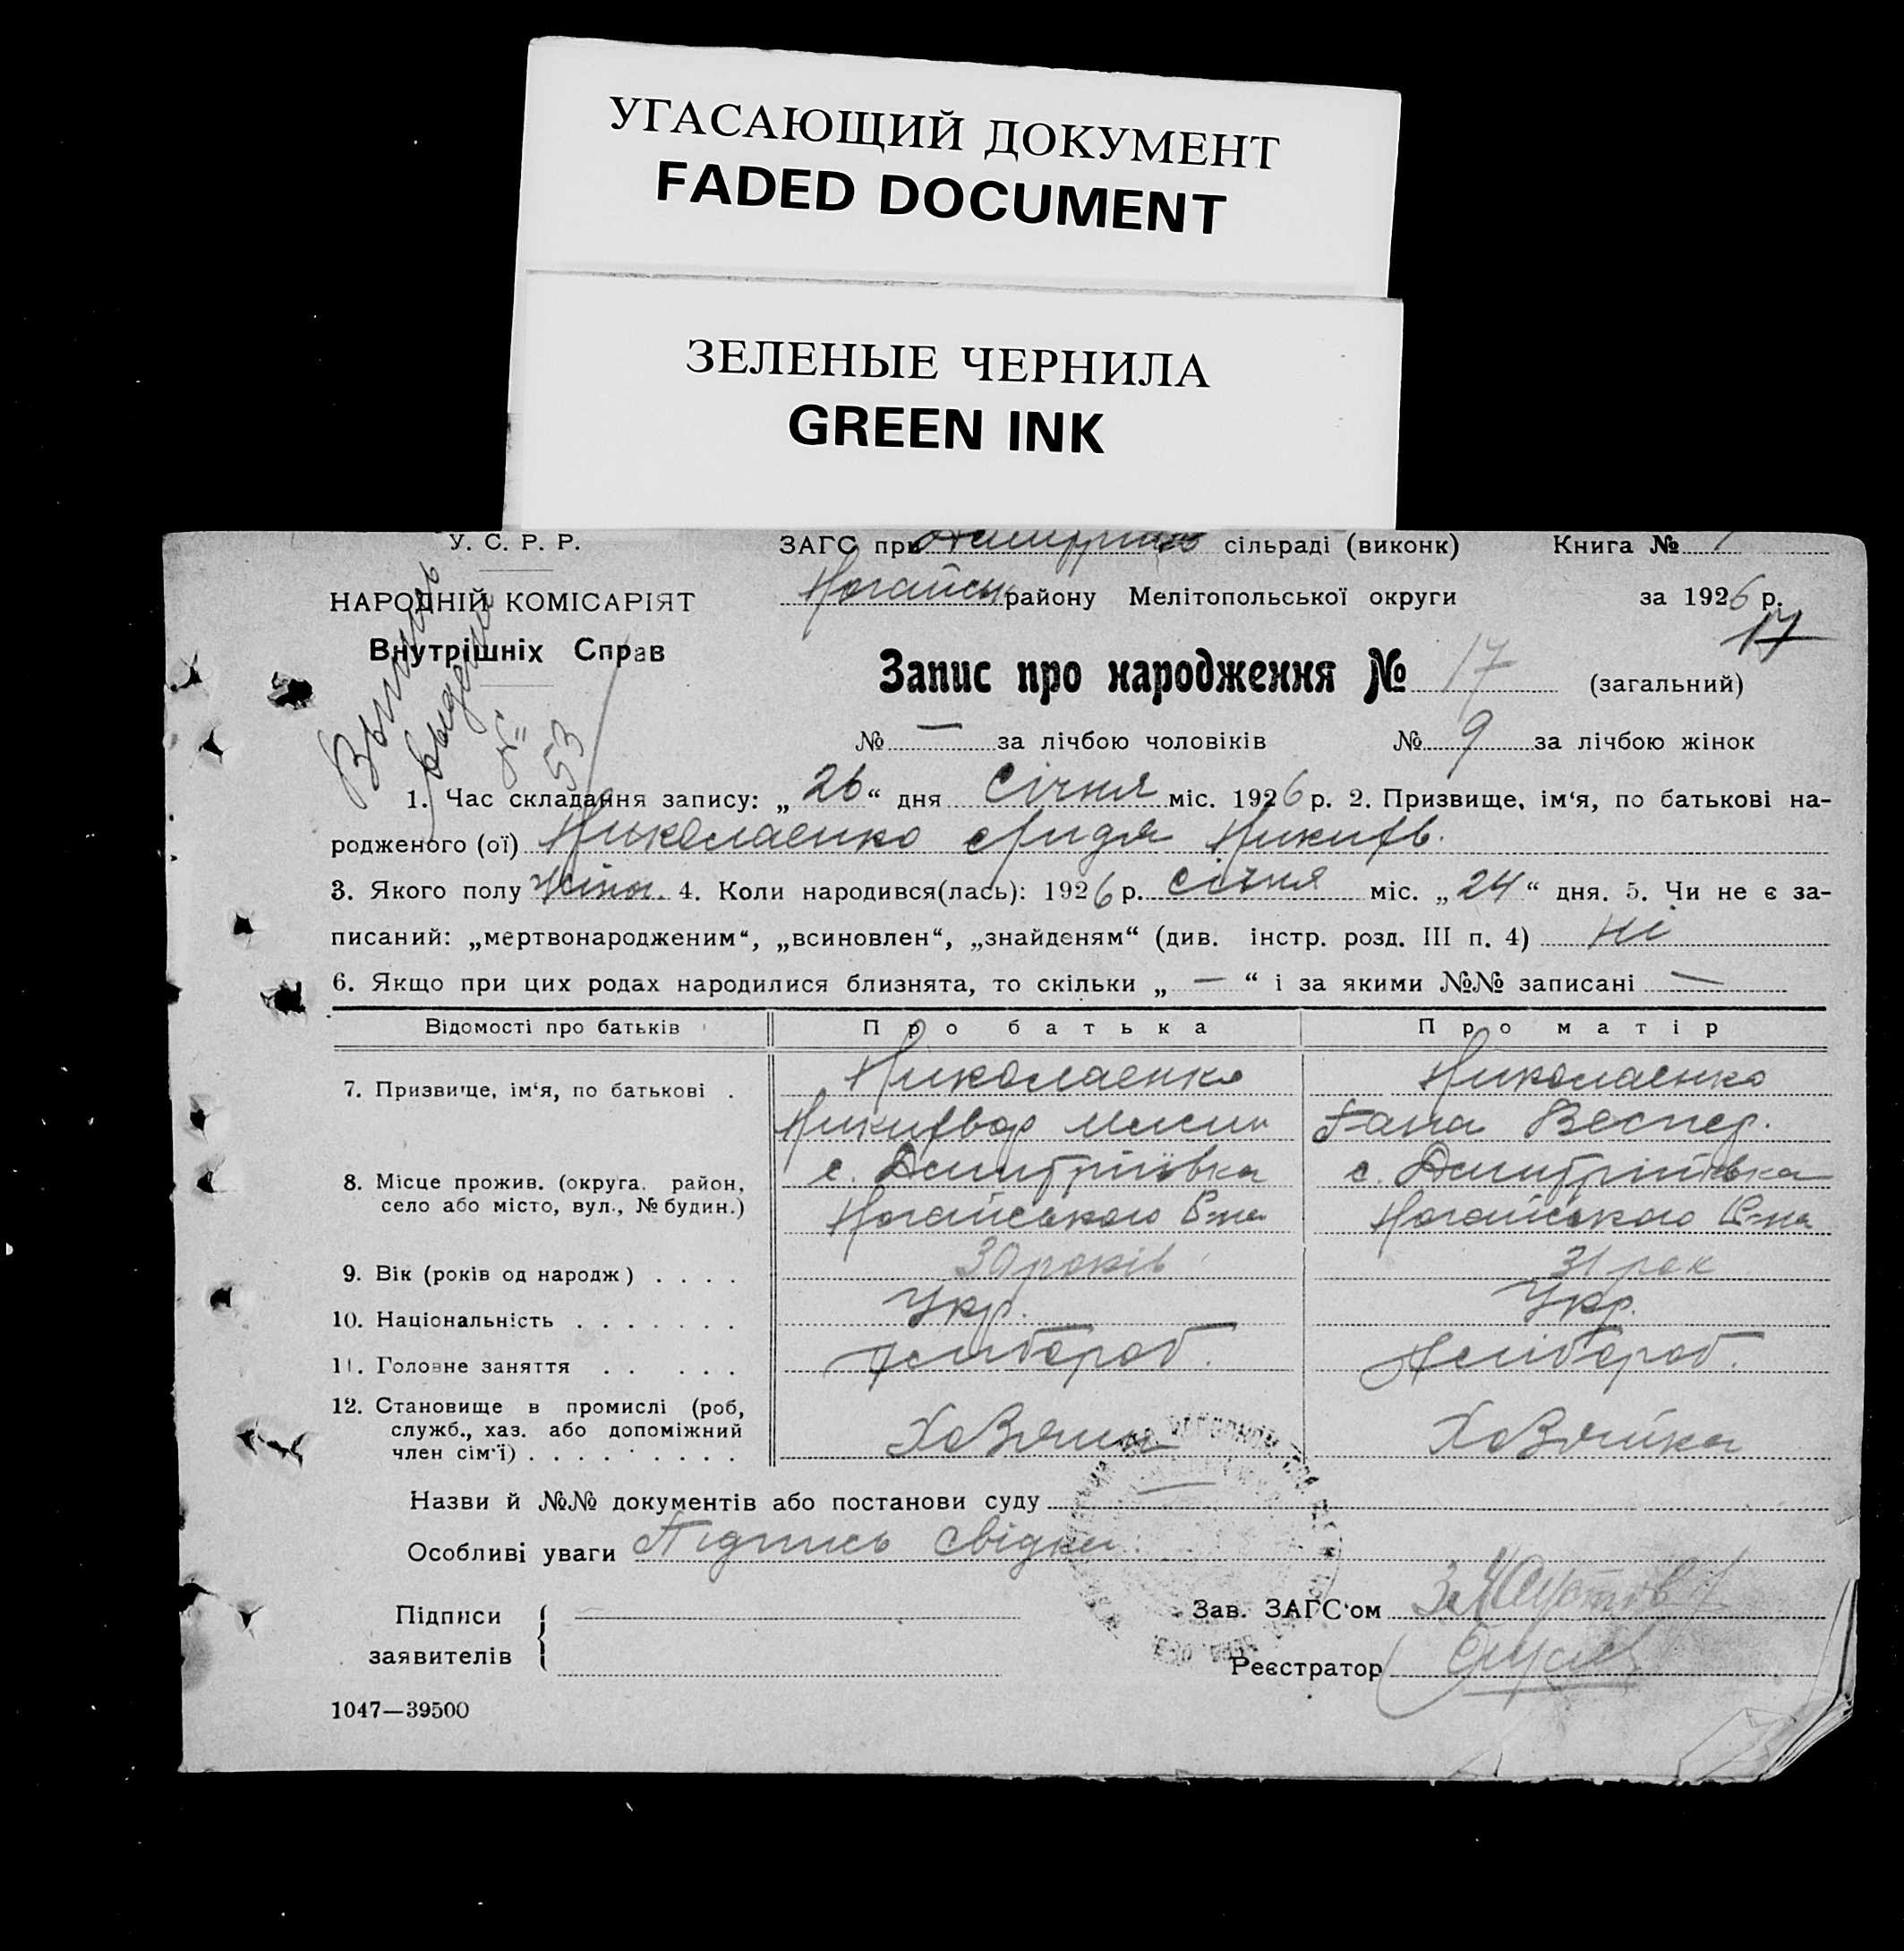 УГАСАЮЩИЙ ДОКУМЕНТ
FADED DOCUMENT
ЗЕЛЕНЫЕ ЧЕРНИЛА
GREEN INK
У. С. Р. Р. ЗАГС при сільраді (виконк) Книга №
НАРОДНІЙ КОМІСАРІЯТ Ногайськ району Мелітопольської округи за 1926 р.
17
Внутрішніх Справ
Запис про народження № 17 (загальний)
Выпись
выдана
№ 53
№ — за лічбою чоловіків № 9 за лічбою жінок
1. Час складання запису: „ 26 “ дня Січня міс. 1926 р. 2. Призвище, ім‘я, по батькові на-
родженого (ої) Николаенко Лидя
3. Якого полу жіноч. 4. Коли народився(лась): 1926 р. січня міс. „ 24 “ дня. 5. Чи не є за-
писаний: „мертвонародженим“, „всиновлен“, „знайденям“ (див. інстр. розд. III п. 4) Ні
6. Якщо при цих родах народилися близнята, то скільки „ — “ і за якими №№ записані —
Відомості про батьків Про батька Про матір
7. Призвище, ім‘я, по батькові . Николаенко Николаенко
Гана
с. Дмитріівка с. Дмитріівка
8. Місце прожив. (округа. район,
село або місто, вул., № будин.) Ногайського Р-на Ногайського Р-на
9. Вік (років од народж) . . . . 30 років 31 рок
10. Національність . . . . . . . Укр. Укр.
11. Головне заняття . . . . . Хлібороб. Хлібороб.
12. Становище в промислі (роб,
служб., хаз. або допоміжний
член сім‘ї) . . . . . . . . . Хозяин Хозяйка
Назви й №№ документів або постанови суду
Особливі уваги Підпись свідки
Підписи
заявителів
Зав. ЗАГС‘ом
Реєстратор
1047—39500